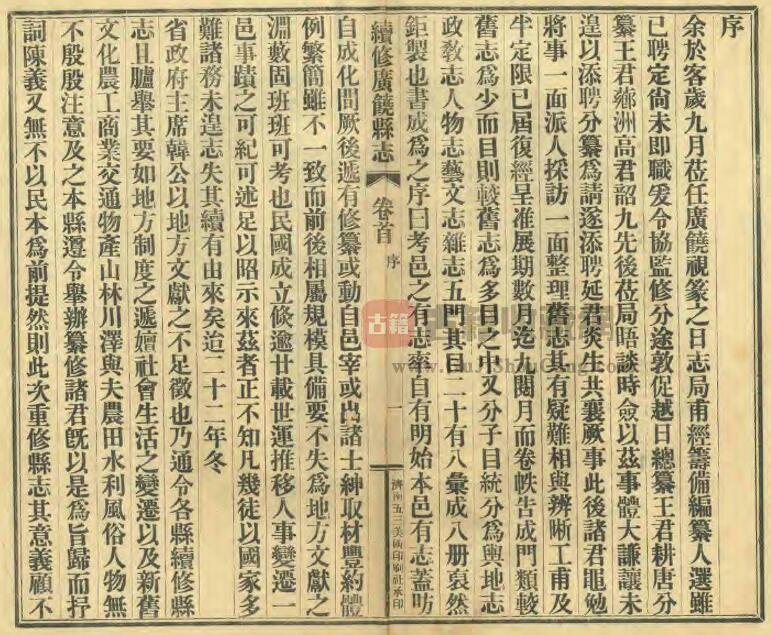 序
余於客歲九月莅任廣饒視篆之日志局甫經籌備編纂人選雖
已聘定尙未即職爰令協監修分途敦促越日總纂王君耕唐分
纂王君薌洲高君韶九先後莅局晤談時僉以茲事體大謙讓未
遑以添聘分纂爲請遂添聘延君炎生共襄厥事此後諸君黽勉
將事一面派人採訪一面整理舊志其有疑難相與辨晰工甫及
半定限已屆復經呈准展期數月迄九閱月而卷帙告成門類較
舊志爲少而目則較舊志爲多目之中又分子目統分爲輿地志
政敎志人物志藝文志雜志五門其目二十有八彙成八册裒然
鉅製也書成爲之序曰考邑之有志率自有明始本邑有志蓋昉
續修廣饒縣志
卷首
序
一
濟南五三美術印刷社承印
自成化間厥後遞有修纂或動自邑宰或出諸士紳取材豐約體
例繁簡雖不一致而前後相屬規模具備要不失爲地方文獻之
淵藪固班班可考也民國成立倏逾廿載世運推移人事變遷一
邑事蹟之可紀可述足以昭示來茲者正不知凡幾徒以國家多
難諸務未遑志失其續有由來矣迨二十二年冬
省政府主席韓公以地方文獻之不足徵也乃通令各縣續修縣
志且臚舉其要如地方制度之遞嬗社會生活之變遷以及新舊
文化農工商業交通物產山林川澤與夫農田水利風俗人物無
不殷殷注意及之本縣遵令舉辦纂修諸君旣以是爲旨歸而抒
詞陳義又無不以民本爲前提然則此次重修縣志其意義顧不
古籍